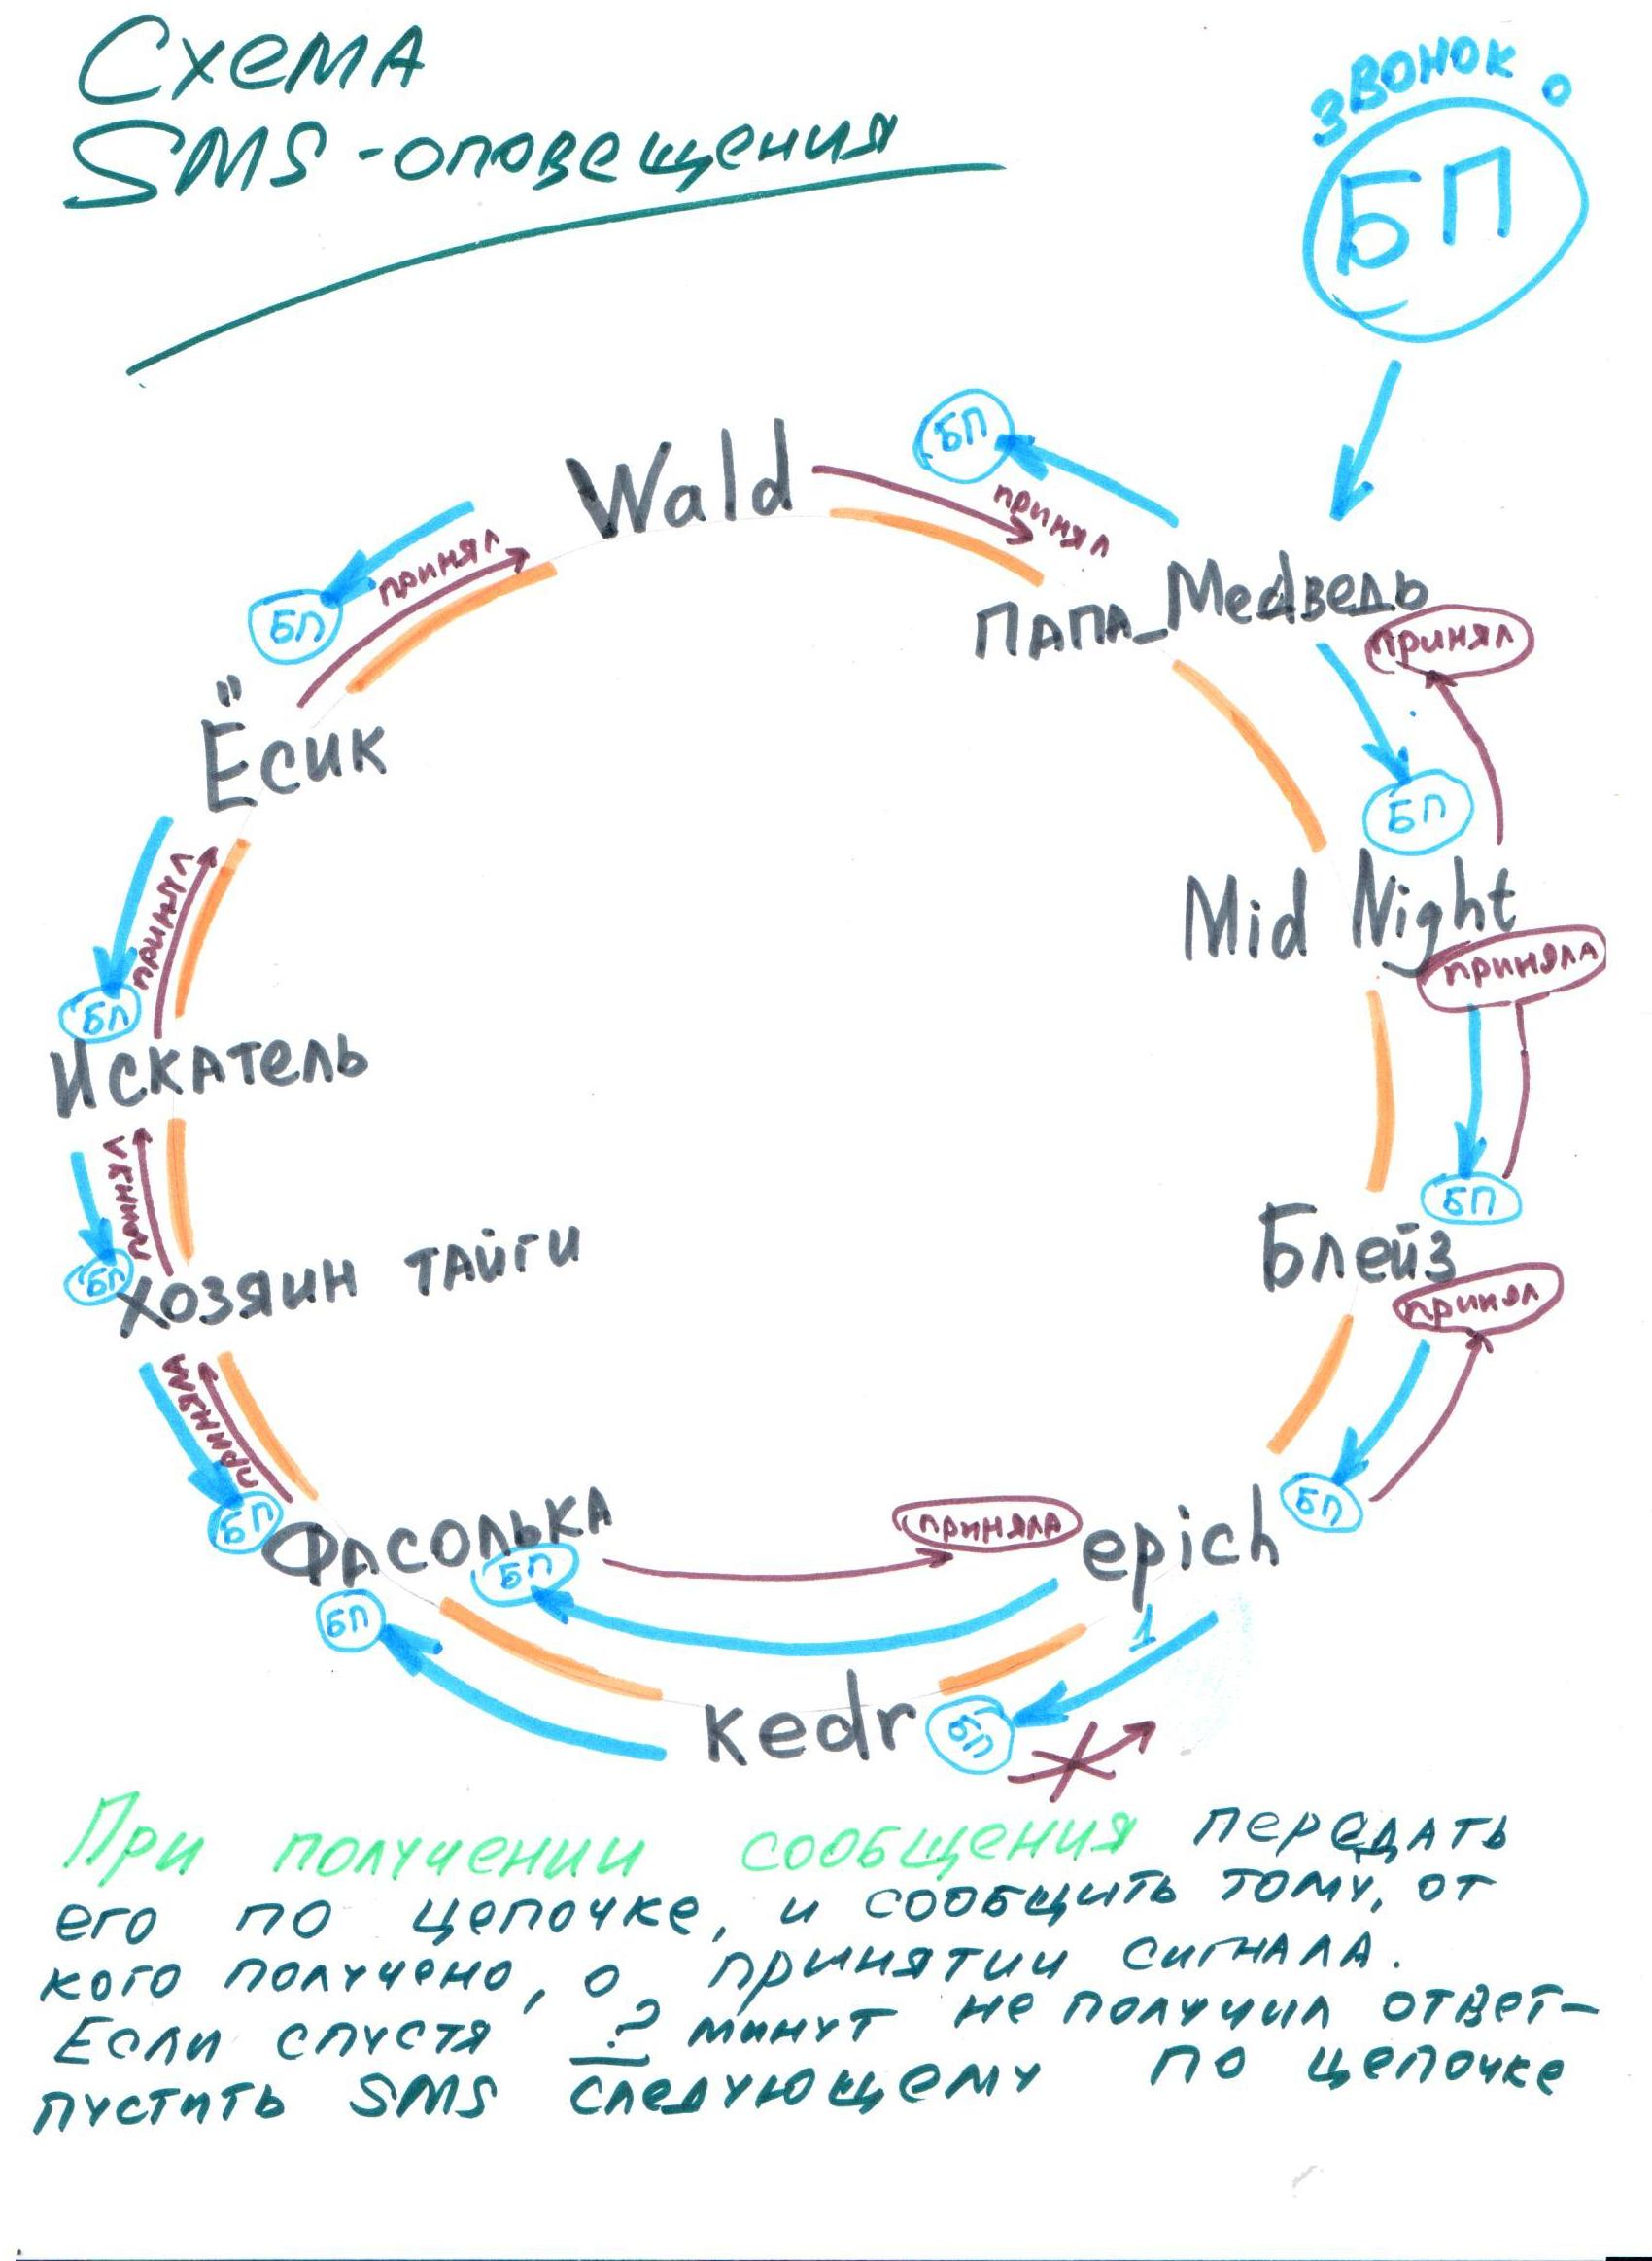 Схема
SMS-оповещения
звонок о
БП
БП
Wald
принял
Папа_Медведь
принял
БП
принял
БП
Ёсик
БП
Mid Night
приняла
принял
БП
Искатель
БП
принял
Блейз
принял
БП
Хозяин тайги
принял
БП
Фасолька
БП
приняла
epich
БП
БП
1
kedr
БП
При получении сообщения передать
его по цепочке, и сообщить тому, от
кого получено, о принятии сигнала.
Если спустя ? минут не получил ответ-
пустить SMS следующему по цепочке